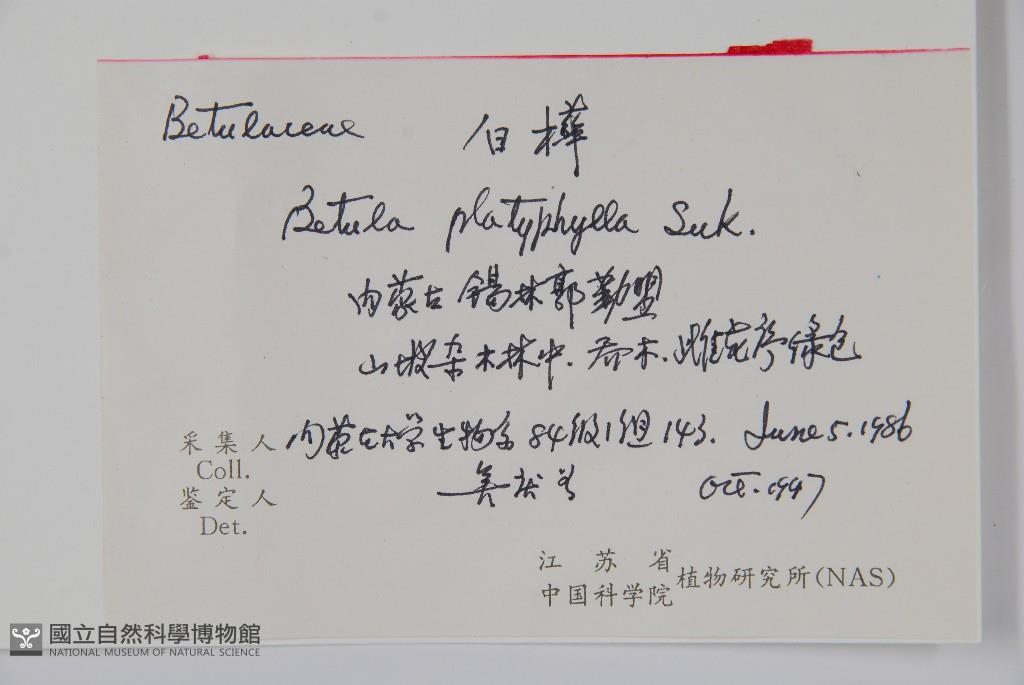 Betulaceae 白樺
Betula platyphylla Suk.
内蒙古 锡林郭勒盟
山坡杂木林中. 乔木. 雌花序绿色
采集人 内蒙古大学生物系84级1组 143. June 5. 1986
Coll.
鉴定人 Oct. 1997
Det.
江苏省
中国科学院植物研究所(NAS)
國立自然科學博物館
NATIONAL MUSEUM OF NATURAL SCIENCE